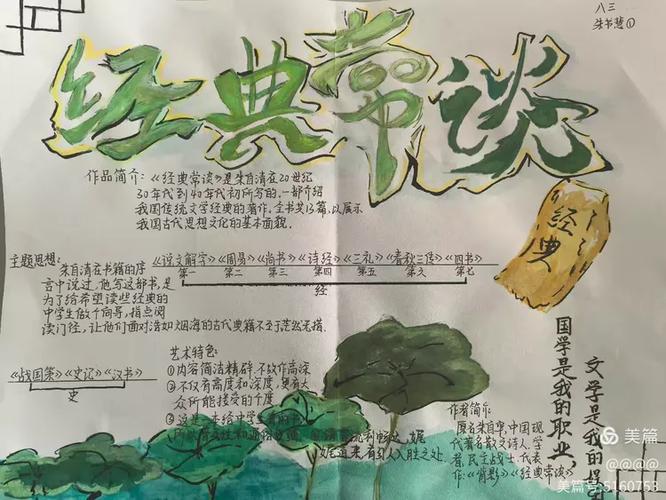 八三
朱书慧①
经典常谈
作品简介:《经典常谈》是朱自清在20世纪
30年代到40年代初所写的,一部介绍
我国传统文学经典的著作,全书共13篇,以展示
我国古代思想文化的基本面貌.
经典
主题思想:
朱自清在书籍的序
言中说过,他写这部书,是
为了给希望读些经典的
中学生做个向导,指点阅
读门径,让他们面对浩如烟海的古代典籍不至于茫然无措.
《说文解字》《周易》《尚书》《诗经》《三礼》《春秋三传》《四书》
第一 第二 第三 第四 第五 第六 第七
经
《战国策》《史记》《汉书》
史
艺术特色:
①内容简洁精辟,不故作高深
②不仅有高度和深度,更有大
众所能接受的个度
③这是一本给中学生看的书
娓娓道来,有引人入胜之处.
作者简介:
原名朱自华,中国现
代著名散文诗人,学
者,民主战士,代表
作:《背影》《经典常谈》
国学是我的职业,
文学是我的
美篇
@@@@
美篇号:5160753